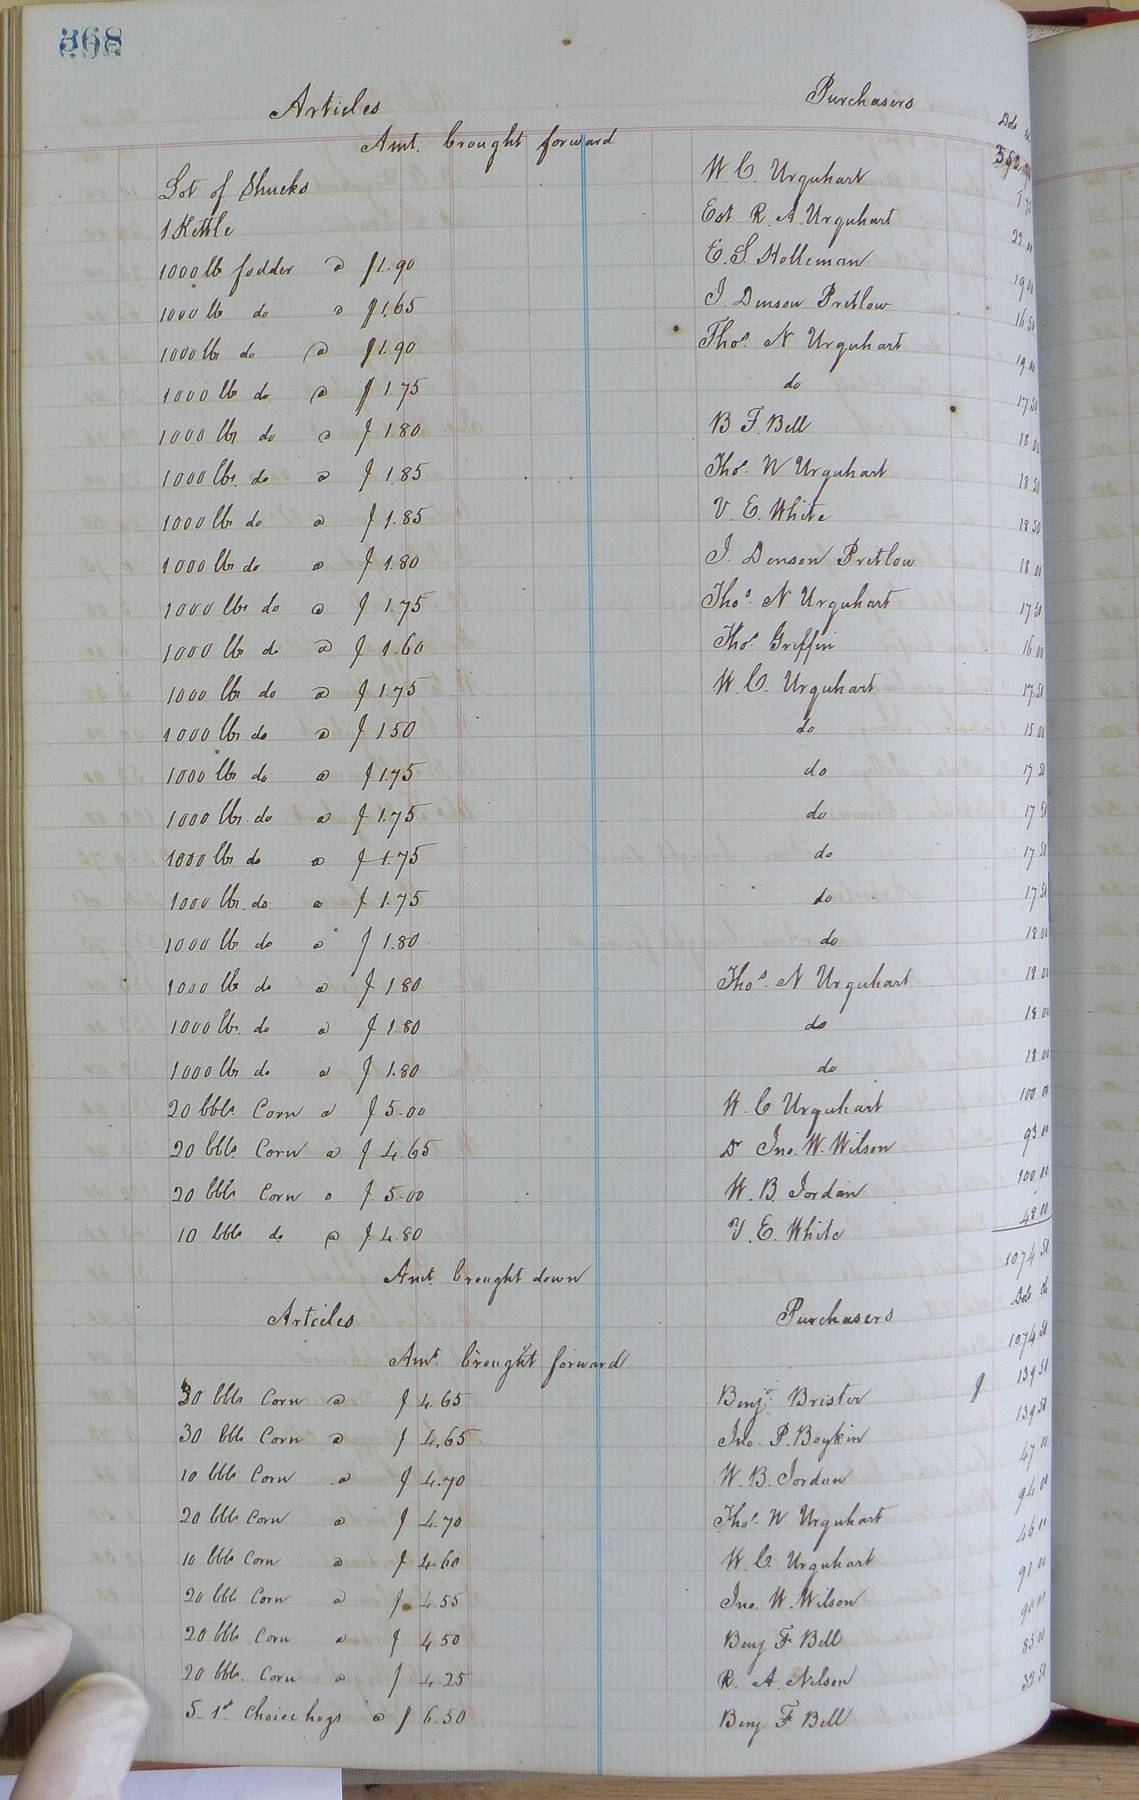 368
Articles Purchasers
Dols
Amt. brought forward
Lot of Shucks W C. Urquhart
1 Kettle Est R. A. Urquhart 22.00
1000 lb fodder @ $1.90 E. S. Holleman 19 00
1000 lb do @ $1.65 J. Denson Pretlow 16.50
1000 lbs do @ $1.90 Thos. N Urquhart 19 00
1000 lbs do @ $1.75 do 17.50
1000 lbs do @ $1.80 B F. Bell 18.00
1000 lbs. do @ $1.85 Thos. N Urquhart 18 50
1000 lbs do @ $1.85 V. E. White 18 50
1000 lbs do @ $1.80 J. Denson Pretlow 18 00
1000 lbs do @ $1.75 Thos. N Urquhart 17.50
1000 lbs do @ $1.60 Thos. Griffin 16 00
1000 lbs do @ $1.75 W. C. Urquhart 17.50
1000 lbs do @ $1.50 do 15 00
1000 lbs do @ $1.75 do 17 50
1000 lbs. do @ $1.75 do 17 50
1000 lbs. do @ $1.75 do 17 50
1000 lbs. do @ $1.75 do 17 50
1000 lbs do @ $1.80 do 18 00
1000 lbs do @ $1 80 Thos. N Urquhart 18 00
1000 lbs. do @ $1.80 do 18 00
1000 lbs do @ $1.80 do 18 00
20 bbls Corn @ $5.00 W. C Urquhart 100 00
20 bbls. Corn @ $4.65 Dr Jno. W. Wilson 93.00
20 bbls Corn @ $5.00 W. B. Jordan 100 00
10 bbls do @ $4.80 V. E. White 48 00
1074 50
Amt. brought down
Dols Cts
Articles Purchasers
1074 50
Amt. brought forward
30 bbls Corn @ $4.65 Benj. Brister $ 139 50
30 bbls Corn @ $4.65 Jno. P. Boykin 139 50
10 bbls Corn @ $4.70 W. B. Jordan 47 00
20 bbls Corn @ $4.70 Thos. N Urquhart 94 00
10 bbls Corn @ $4.60 W. C. Urquhart 46 00
20 bbls Corn @ $4.55 Jno. W. Wilson 91 00
20 bbls Corn @ $4.50 Benj F Bell 90 00
20 bbls. Corn @ $4.25 R. A. Nelson 85 00
5 1st Choice hogs @ $6.50 Benj F Bell 32 50